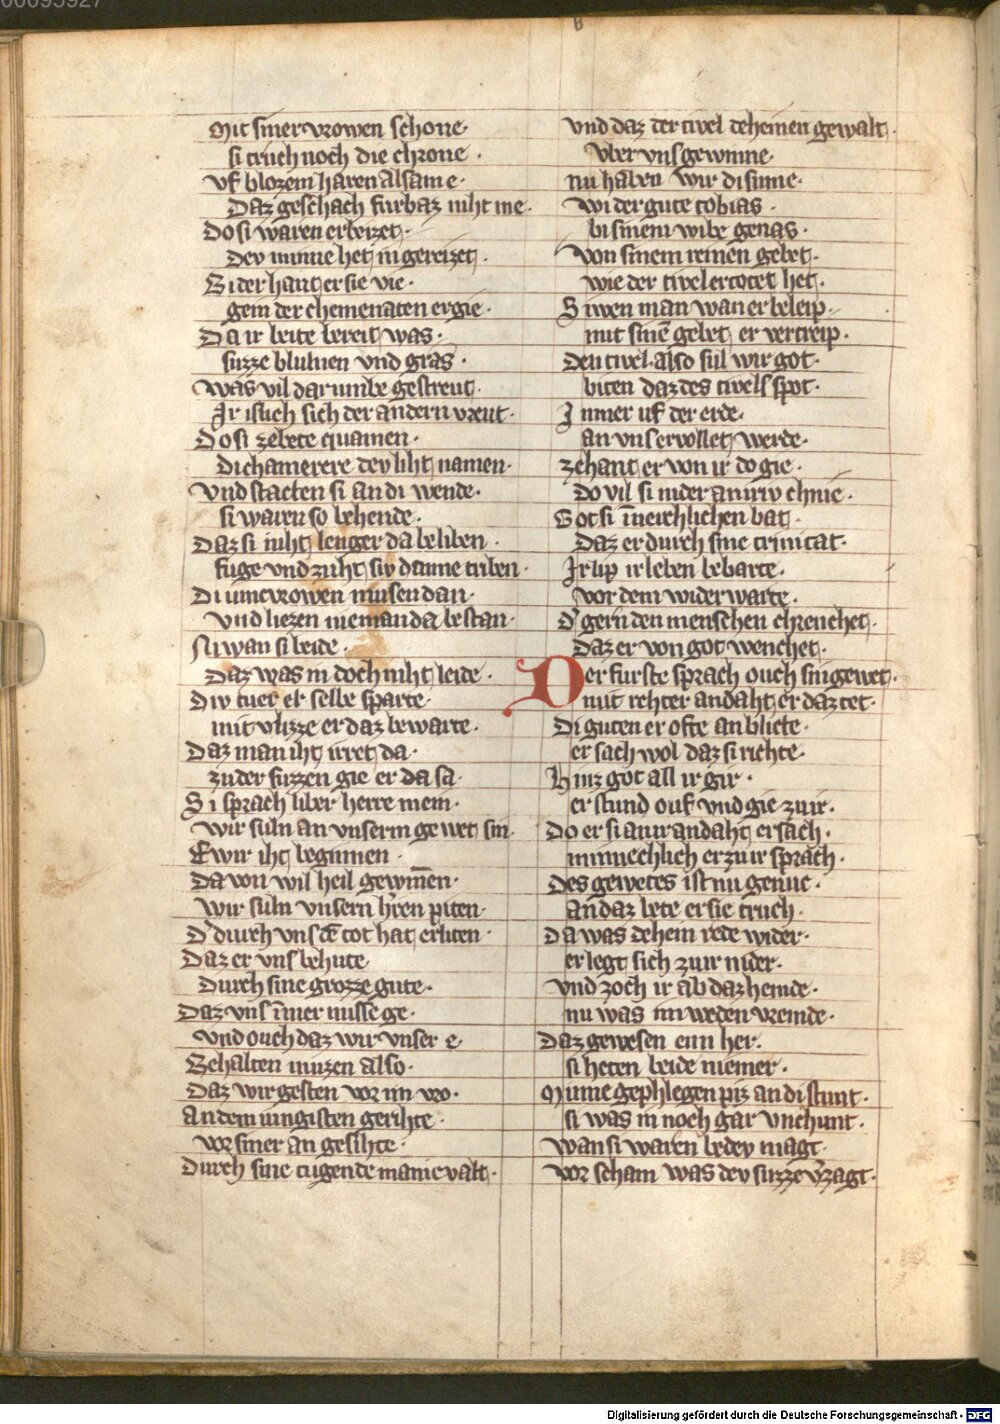 00095927
Mit siner vrowen schone·
si truch noch die chrone·
vf blozem haren alsam e·
Daz geschach furbaz niht me·
Do si waren erbeizet·
Dev minne het in gereizet·
Bi der hant er sie vie·
gein der chemenaten er gie·
Da ir bette bereit was·
suzze blumen vnd gras·
Was vil dar umbe gestreut·
Ir islich sich der andern vreut·
Do si zebete quamen·
Di chamerere dev liht namen·
Vnd stacten si an di wende·
si waren so behende·
Daz si niht lenger da beliben·
fuge vnd zuht siv danne triben·
Di iuncvrowen musen dan·
vnd liezen nieman da bestan·
Niwan si beide·
Daz was in doch niht leide·
Div tuer er selbe sparte·
mit vlizze er daz bewarte·
Daz man iht irret da·
zu der suzzen gie er da sa·
Si sprach liber herre mein·
wir suln an vnserm gewet sin·
E wir iht beginnen·
Da von wil heil gewinēn·
wir suln vnsern h̄ren piten·
D' durch vns dē tot hat erliten·
Daz er vns behute·
Durch sine grozze gute·
Daz vns im̄er misse ge·
vnd ouch daz wir vnser e·
Behalten muzen also·
Daz wir gesten vor im vro·
An dem iungisten gerihte·
vor siner an gesihte·
Durch sine tugende manicvalt·
Vnd daz der tivel deheinen gewalt·
vber vns gewinne·
nu haben wir di sinne·
wi der gute tobias·
bi sinem wibe genas·
Von sinem reinen gebet·
wie der tivel ertotet het·
Siwen man wan er beleip·
mit sinē gebet er vertreip·
Den tivel also sul wir got·
biten daz des tivels spot·
Immer uf der erde·
an vns ervollet werde·
zehant er von ir do gie·
Do vil si nider an iriv chnie·
Got si in̄erchlichen bat·
Daz er durch sine trinitat·
Ir lip ir leben bebarte·
vor dem widerwarte·
D' gern den menschen chrenchet·
Daz er von got wenchet·
Der furste sprach ouch sin gewet·
mit rehter andaht er daz tet·
Di guten er ofte anblicte·
er sach wol daz si richte·
Hinz got all ir gir·
er stund ouf vnd gie zu ir·
Do er si an ir andaht ersach·
minnechlich er zu ir sprach·
Des gewetes ist nu genuc·
an daz bete er sie truch·
Da was dehein rede wider·
er legt sich zu ir nider·
Vnd zoch ir ab daz hemde·
nu was im weden vremde·
Daz gewesen ein her·
si heten beide niemer·
Minne gephlegen piz an di stunt·
si was in noch gar vnchunt·
wan si waren bedev magt·
vor scham was dev suzze v̄zagt·
Digitalisierung gefördert durch die Deutsche Forschungsgemeinschaft - DFG